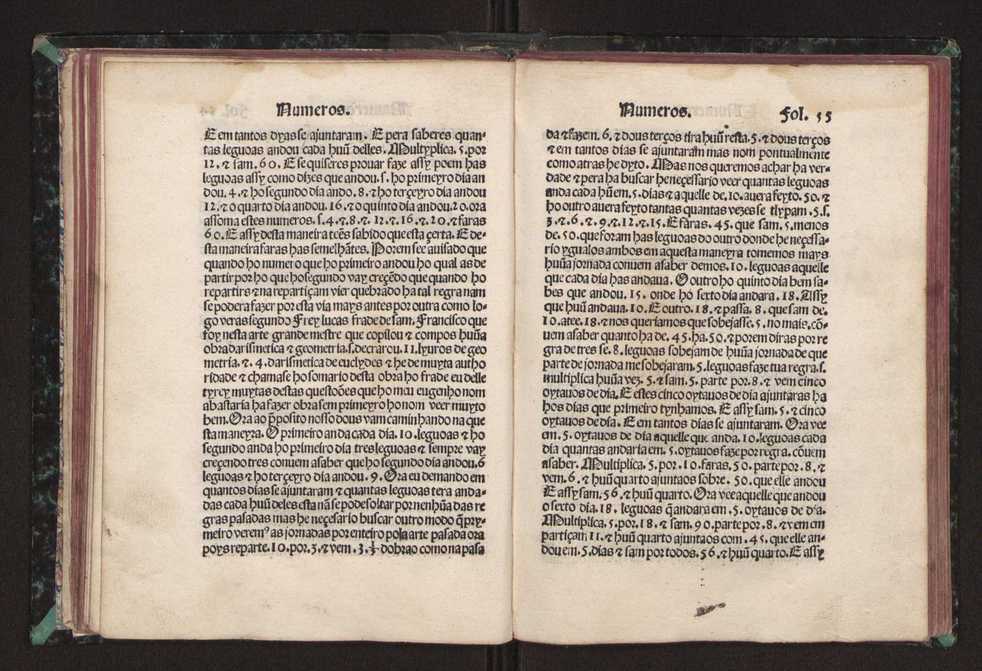 Numeros.
E em tantos dyas se ajuntaram. E pera saberes quan-
tas leguoas andou cada huũ delles. Multyplica. 5. por
12. ⁊ sam. 60. E se quiseres prouar faze assy poem has
leguoas assy como dizes que andou. s. ho primeyro dia an
dou. 4. ⁊ ho segundo dia ando. 8. ⁊ ho terçeyro dia andou
12. ⁊ o quarto dia andou. 16. ⁊ o quinto dia andou. 20. ora
assoma estes numeros. s. 4. ⁊ 8. ⁊. 12. ⁊. 16. ⁊. 20. ⁊ faras
60. E assy desta maneira teẽs sabido que esta çerta. E de-
sta maneira faras has semelhãtes. Porem see auisado que
quando ho numero que ho primeiro andou ho qual as de
partir por ho que ho segundo vay creçẽdo que quando ho
repartirs ⁊ na repartiçam vier quebrado ha tal regra nam
se podera fazer por esta via mays antes por outra como lo-
go veras segundo Frey lucas frade de sam. Francisco que
foy nesta arte grande mestre que copilou ⁊ compos huũa
obra darismetica ⁊ geometria. s. decrarou. 11. lyuros de geo
metria. ⁊. 4. darismetica de euclydes ⁊ he de muyta autho
ridade ⁊ chamase ho somario desta obra ho frade eu delle
tyrey muytas destas questoões que ho meu eugenho nom
abastaria ha fazer obra sem primeyro ho nom veer muyto
bem. Ora ao p̃posito nosso dous vam caminhando na que
sta maneyra. O primeiro anda cada dia. 10. leguoas ⁊ ho
segundo anda ho primeiro dia tres leguoas ⁊ sempre vay
creçendo tres conuem a saber que ho segundo dia andou. 6
leguoas ⁊ ho terçeyro dia andou. 9. Ora eu demando em
quantos dias se ajuntaram ⁊ quantas leguoas tera anda-
das cada huũ deles esta nã se pode soltar por nenhũa das re
gras pasadas mas he neçesario buscar outro modo q̃ pry-
meiro verem⁹ as jornadas por enteiro pola arte pasada ora
poys reparte. 10. por. 3. ⁊ vem. 3. 1/3 dobrao como na pasa
Numeros. Fol. 55
da ⁊ fazem. 6. ⁊ dous terços tira huũ resta. 5. ⁊ dous terços
⁊ em tantos dias se ajuntaram mas nom pontualmente
como atras he dyto. Mas nos queremos achar ha ver-
dade ⁊ pera ha buscar he neçessario veer quantas leguoas
anda cada hũ em. 5. dias ⁊ aquelle de. 10. auera feyto. 50. ⁊
ho outro auera feyto tantas quantas vezes se tlypam. 5. s.
3. ⁊. 6. ⁊. 9. ⁊. 12. ⁊. 15. E faras. 45. que sam. 5. menos
de. 50. que foram has leguoas do outro donde he neçessa-
rio ygualos ambos em aquesta maneyra tomemos mays
huũa jornada conuem a saber demos. 10. leguoas aquelle
que cada dia has andaua. O outro ho quinto dia bem sa-
bes que andou. 15. onde ho sexto dia andara. 18. Assy
que huũ andaua. 10. E outro. 18. ⁊ passa. 8. que sam de.
10. atee. 18. ⁊ nos queriamos que sobejasse. 5. no mais. cõ-
uem asaber quanto ha de. 45. ha. 50. ⁊ porem diras por re
gra de tres se. 8. leguoas sobejam de huũa jornada de que
parte de jornada me sobejaram. 5. leguoas faze tua regra. s.
multiplica huũa vez. 5. ⁊ sam. 5. parte por. 8. ⁊ vem cinco
oytauos de dia. E estes cinco oytauos de dia ajuntaras ha
hos dias que primeiro tynhamos. E assy sam. 5. ⁊ cinco
oytauos de dia. E em tantos dias se ajuntaram. Ora vee
em. 5. oytauos de dia aquelle que anda. 10. leguoas cada
dia quantas andaria em. 5. oytauos faze por regra. cõuem
asaber. Multiplica. 5. por. 10. faras. 50. parte por. 8. ⁊
vem. 6. ⁊ huũ quarto ajuntaos sobre. 50. que elle andou
E assy sam. 56. ⁊ huũ quarto. Ora vee aquelle que andou
o sexto dia. 18. leguoas q̃ andara em. 5. oytauos de dia.
Multiplica. 5. por. 18. ⁊ sam. 90. parte por. 8. ⁊ vem em
partiçam 11. ⁊ huũ quarto ajuntaos com. 45. que elle an-
dou em. 5. dias ⁊ sam por todos. 56. ⁊ huũ quarto. E assy